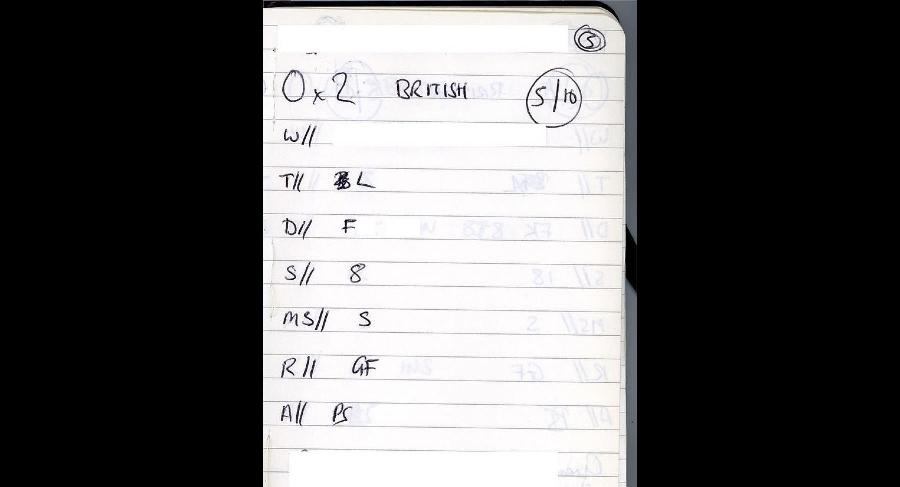 3
0x2 BRITISH 5/10
W//
T// L
D// F
S// 8
MS// S
R// GF
A// PS